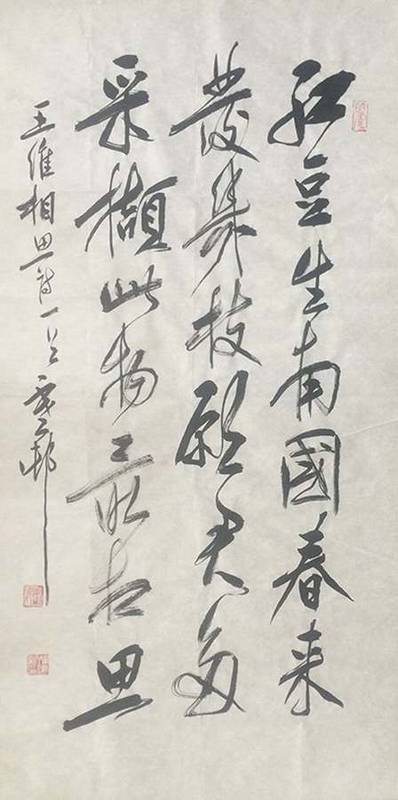 红豆生南國春来
發幾枝願君多
采擷此物最相思
王维相思诗一首